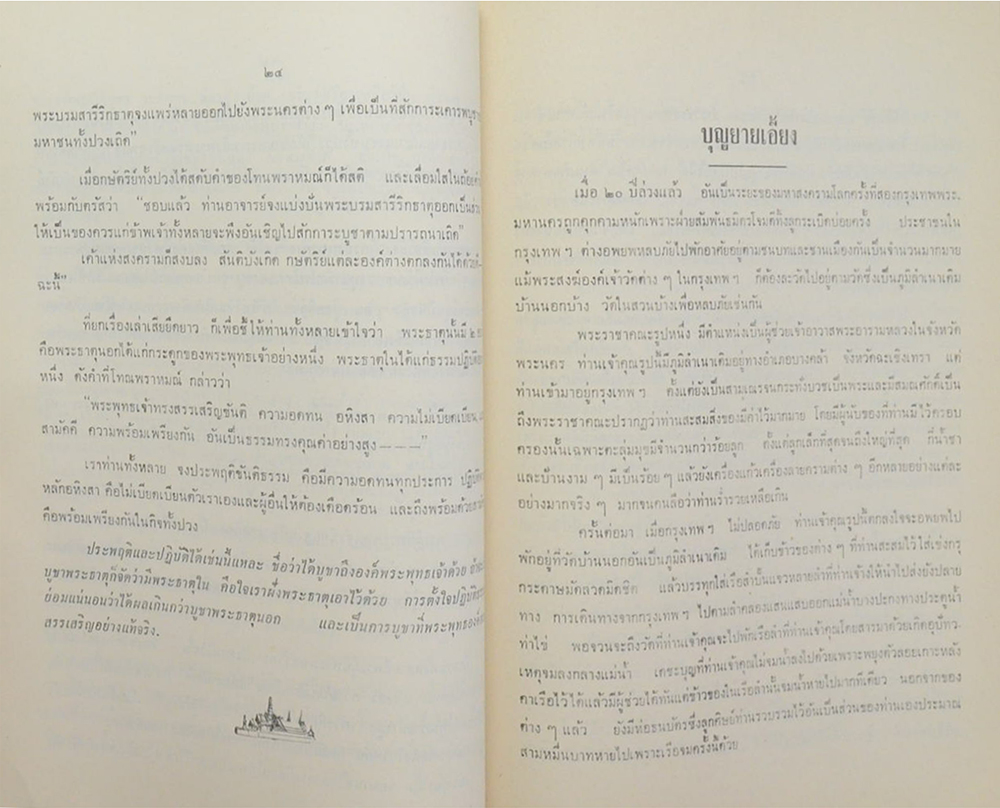 ๒๔
พระบรมสารีริกธาตุจงแพร่หลายออกไปยังพระนครต่าง ๆ เพื่อเป็นที่สักการะเคารพบูชา
มหาชนทั้งปวงเถิด"
เมื่อกษัตริย์ทั้งปวงได้สดับคำของโทนพราหมณ์ก็ได้สติ และเลื่อมใสในถ้อยคำ
พร้อมกับตรัสว่า "ชอบแล้ว ท่านอาจารย์จงแบ่งปันพระบรมสารีริกธาตุออกเป็นส่วน
ให้เป็นของควรแก่ข้าพเจ้าทั้งหลายจะพึงอันเชิญไปสักการะบูชาตามปรารถนาเถิด"
เค้าแห่งสงครามก็สงบลง สันติบังเกิด กษัตริย์แต่ละองค์ต่างตกลงกันได้ด้วยดี
ฉะนี้"
ที่ยกเรื่องเล่าเสียยืดยาว ก็เพื่อชี้ให้ท่านทั้งหลายเข้าใจว่า พระธาตุนั้นมี ๒
คือพระธาตุนอกได้แก่กระดูกของพระพุทธเจ้าอย่างหนึ่ง พระธาตุในได้แก่ธรรมปฏิบัติ
หนึ่ง ดังคำที่โทณพราหมณ์ กล่าวว่า
"พระพุทธเจ้าทรงสรรเสริญขันติ ความอดทน อหิงสา ความไม่เบียดเบียน
สามัคคี ความพร้อมเพรียงกัน อันเป็นธรรมทรงคุณค่าอย่างสูง ———"
เราท่านทั้งหลาย จงประพฤติขันติธรรม คือมีความอดทนทุกประการ ปฏิบัติ
หลักอหิงสา คือไม่เบียดเบียนตัวเราเองและผู้อื่นให้ต้องเดือดร้อน และถึงพร้อมด้วย
คือพร้อมเพรียงกันในกิจทั้งปวง
ประพฤติและปฏิบัติได้เช่นนี้แหละ ชื่อว่าได้บูชาถึงองค์พระพุทธเจ้าด้วย
บูชาพระธาตุก็จัดว่ามีพระธาตุใน คือใจเราฝังพระธาตุเอาไว้ด้วย การตั้งใจปฏิบัติ
ย่อมแน่นอนว่าได้ผลเกินกว่าบูชาพระธาตุนอก และเป็นการบูชาที่พระพุทธองค์
สรรเสริญอย่างแท้จริง.
บุญยายเอี้ยง
เมื่อ ๒๐ ปีล่วงแล้ว อันเป็นระยะของมหาสงครามโลกครั้งที่สองกรุงเทพพระ-
มหานครถูกคุกคามหนักเพราะฝ่ายสัมพันธมิตรโจมตีทิ้งลูกระเบิดบ่อยครั้ง ประชาชนใน
กรุงเทพ ฯ ต่างอพยพหลบภัยไปพักอาศัยอยู่ตามชนบทและชานเมืองกันเป็นจำนวนมากมาย
แม้พระสงฆ์องค์เจ้าวัดต่าง ๆ ในกรุงเทพ ฯ ก็ต้องละวัดไปอยู่ตามวัดซึ่งเป็นภูมิลำเนาเดิม
บ้านนอกบ้าง วัดในสวนบ้างเพื่อหลบภัยเช่นกัน
พระราชาคณะรูปหนึ่ง มีตำแหน่งเป็นผู้ช่วยเจ้าอาวาสพระอารามหลวงในจังหวัด
พระนคร ท่านเจ้าคุณรูปนี้มีภูมิลำเนาเดิมอยู่ทางอำเภอบางคล้า จังหวัดฉะเชิงเทรา แต่
ท่านเข้ามาอยู่กรุงเทพ ฯ ตั้งแต่ยังเป็นสามเณรจนกระทั่งบวชเป็นพระและมีสมณศักดิ์เป็น
ถึงพระราชาคณะปรากฏว่าท่านสะสมสิ่งของมีค่าไว้มากมาย โดยมีผู้นับของที่ท่านมีไว้ครอบ
ครองนั้นเฉพาะตะลุ่มมุขมีจำนวนกว่าร้อยลูก ตั้งแต่ลูกเล็กที่สุดจนถึงใหญ่ที่สุด กี๋น้ำชา
และปั้นงาม ๆ มีเป็นร้อยๆ แล้วยังเครื่องแก้วเครื่องลายครามต่าง ๆ อีกหลายอย่างแต่ละ
อย่างมากจริง ๆ มากจนคนลือว่าท่านร่ำรวยเหลือเกิน
ครั้นต่อมา เมื่อกรุงเทพ ฯ ไม่ปลอดภัย ท่านเจ้าคุณรูปนี้ตกลงใจจะอพยพไป
พักอยู่ที่วัดบ้านนอกอันเป็นภูมิลำเนาเดิม ได้เก็บข้าวของต่าง ๆ ที่ท่านสะสมไว้ ใส่เข่งกรุ
กระดาษมัดลวดมิดชิด แล้วบรรทุกใส่เรือสำปั้นแจวหลายลำที่ท่านจ้างให้นำไปส่งยังปลาย
ทาง การเดินทางจากกรุงเทพ ฯ ไปตามลำคลองแสนแสบออกแม่น้ำบางปะกงทางประตูน้ำ
ท่าไข่ พอจวนจะถึงวัดที่ท่านเจ้าคุณจะไปพักเรือลำที่ท่านเจ้าคุณโดยสารมาด้วยเกิดอุบัทว-
เหตุจมลงกลางแม่น้ำ เดชะบุญที่ท่านเจ้าคุณไม่จมน้ำลงไปด้วยเพราะพยุงตัวลอยเกาะหลัง
คาเรือไว้ได้แล้วมีผู้ช่วยได้ทันแต่ข้าวของในเรือลำนั้นจมน้ำหายไปมากทีเดียว นอกจากของ
ต่าง ๆ แล้ว ยังมีห่อธนบัตรซึ่งลูกศิษย์ท่านรวบรวมไว้อันเป็นส่วนของท่านเองประมาณ
สามหมื่นบาทหายไปเพราะเรือจมครั้งนี้ด้วย